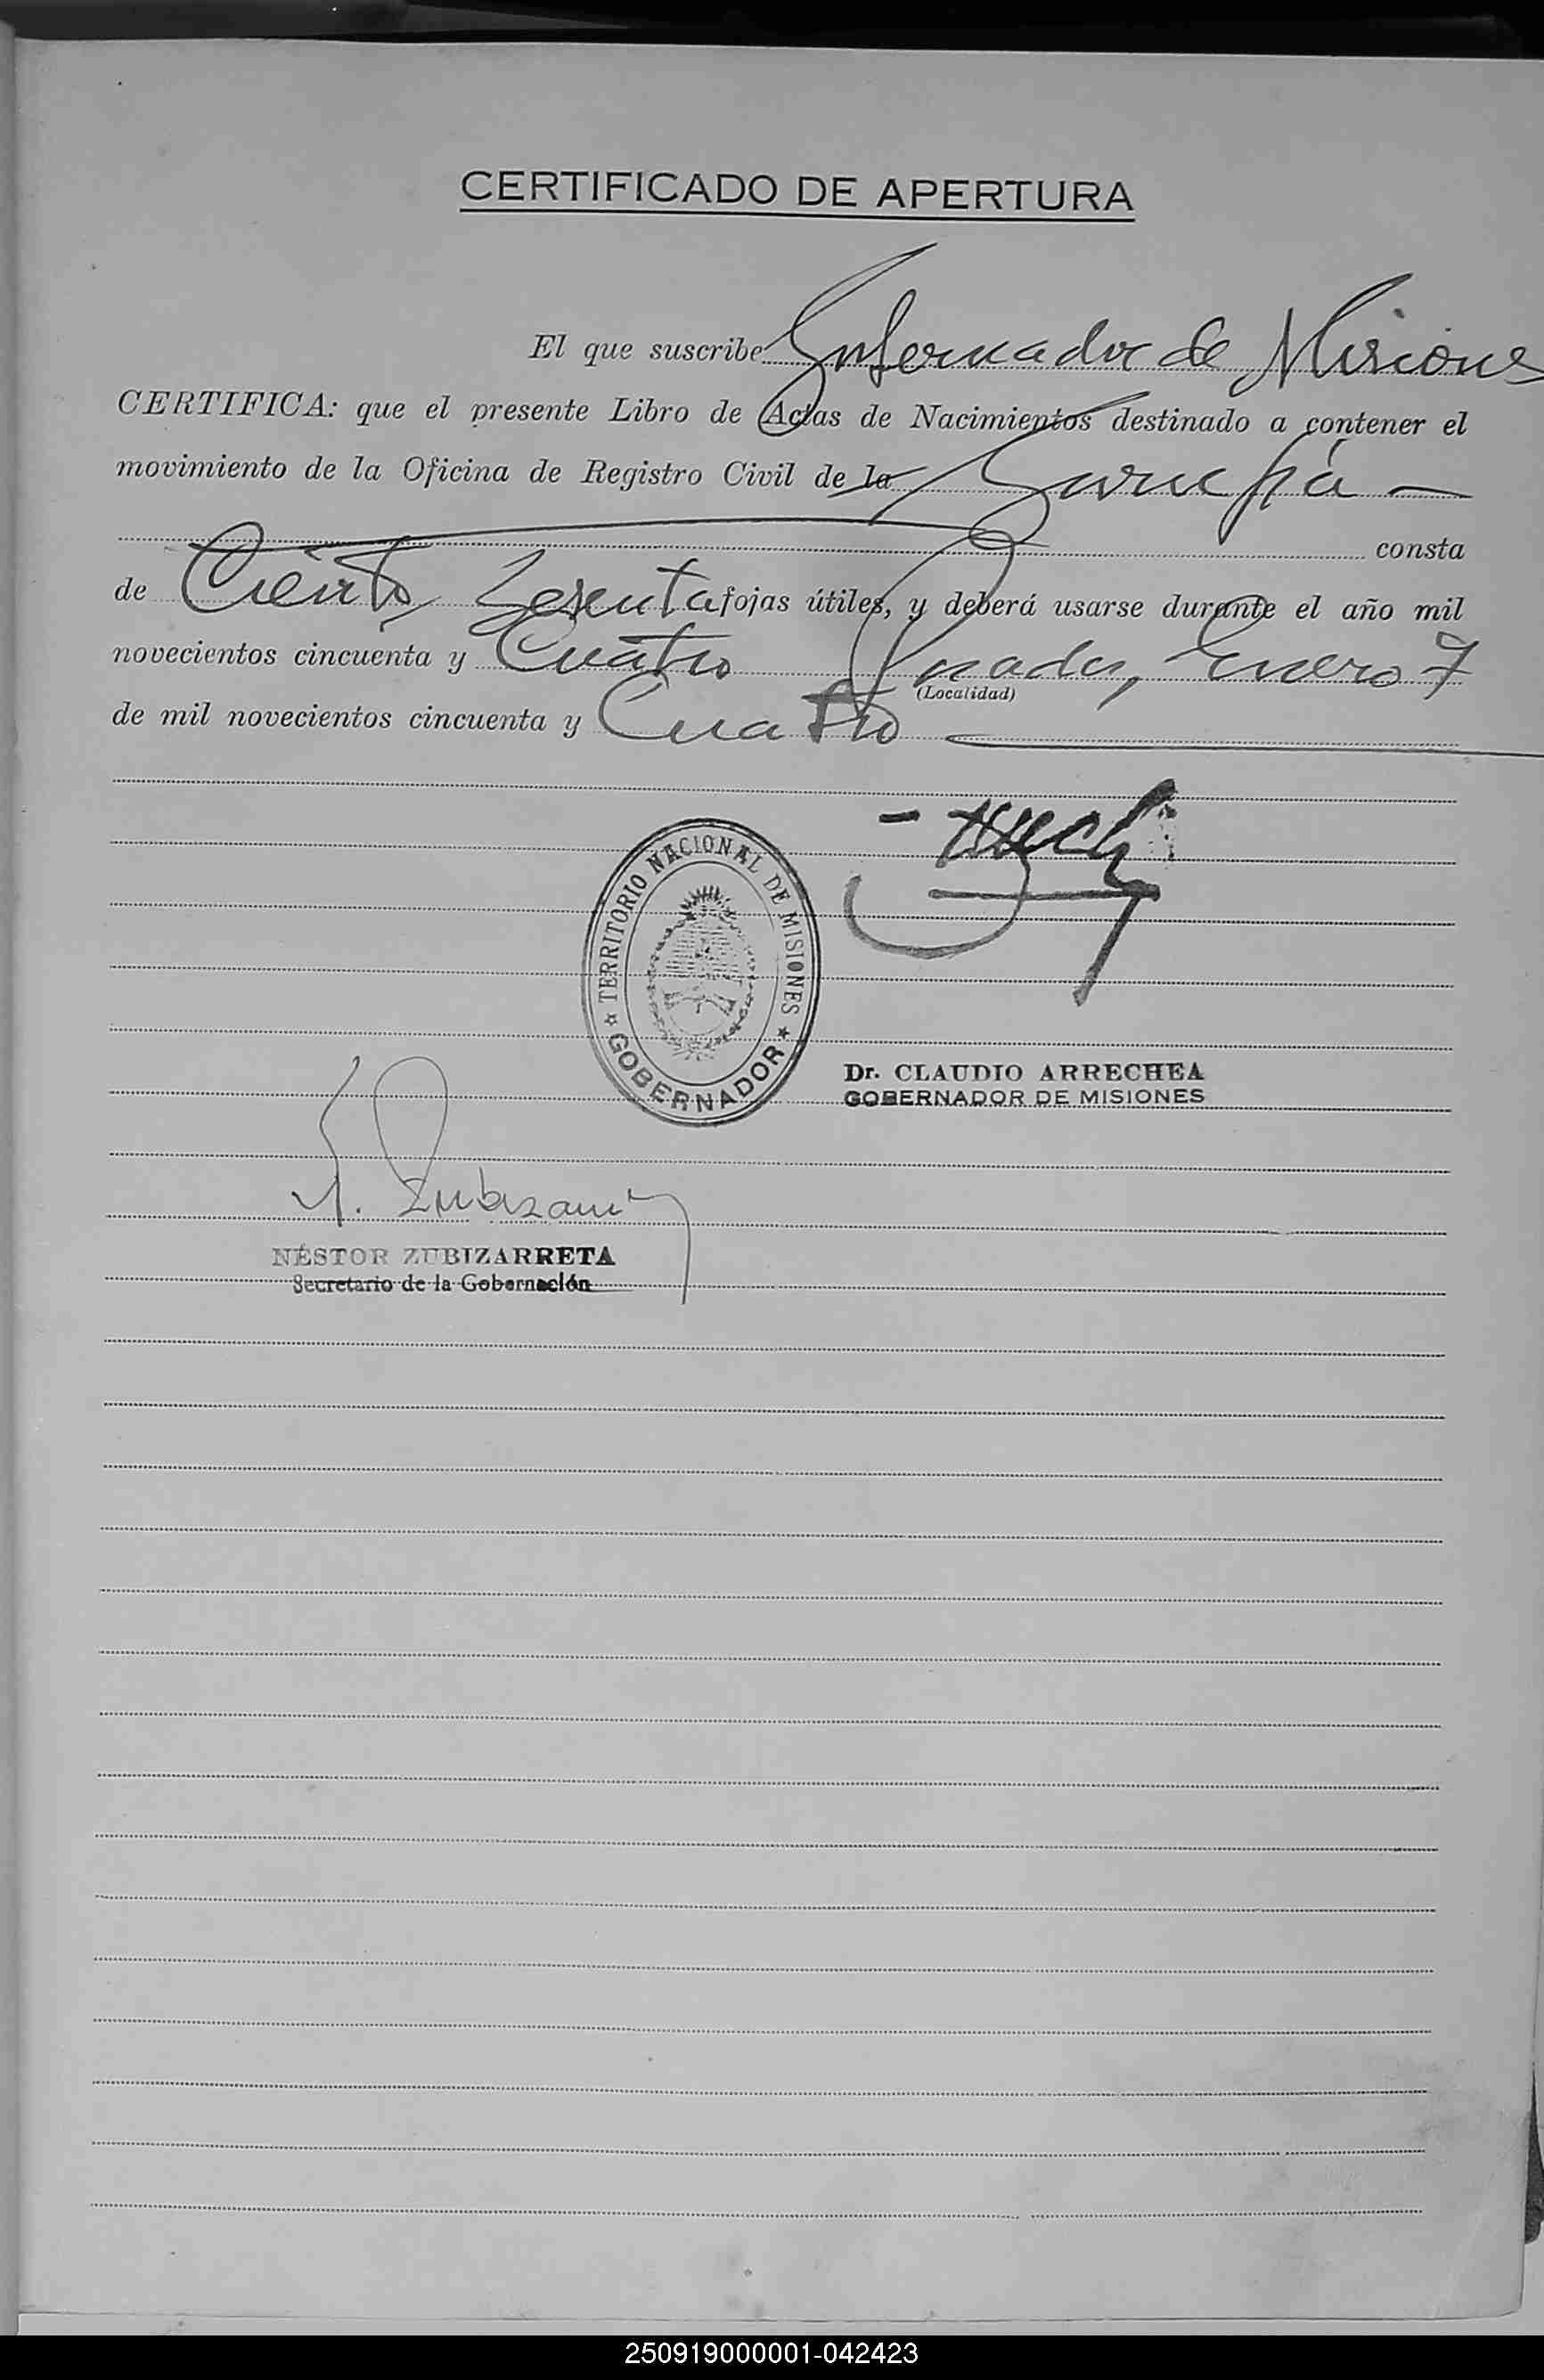 CERTIFICADO DE APERTURA
El que suscribe Gobernador de Misiones
CERTIFICA: que el presente Libro de Actas de Nacimientos destinado a contener el
movimiento de la Oficina de Registro Civil de la Garupá
consta
de Ciento Sesenta fojas útiles, y deberá usarse durante el año mil
novecientos cincuenta y Cuatro Posadas, Enero 7
(Localidad)
de mil novecientos cincuenta y Cuatro
TERRITORIO NACIONAL DE MISIONES
GOBERNADOR
Dr. CLAUDIO ARRECHEA
GOBERNADOR DE MISIONES
N. Zubizarreta
NÉSTOR ZUBIZARRETA
Secretario de la Gobernación
250919000001-042423